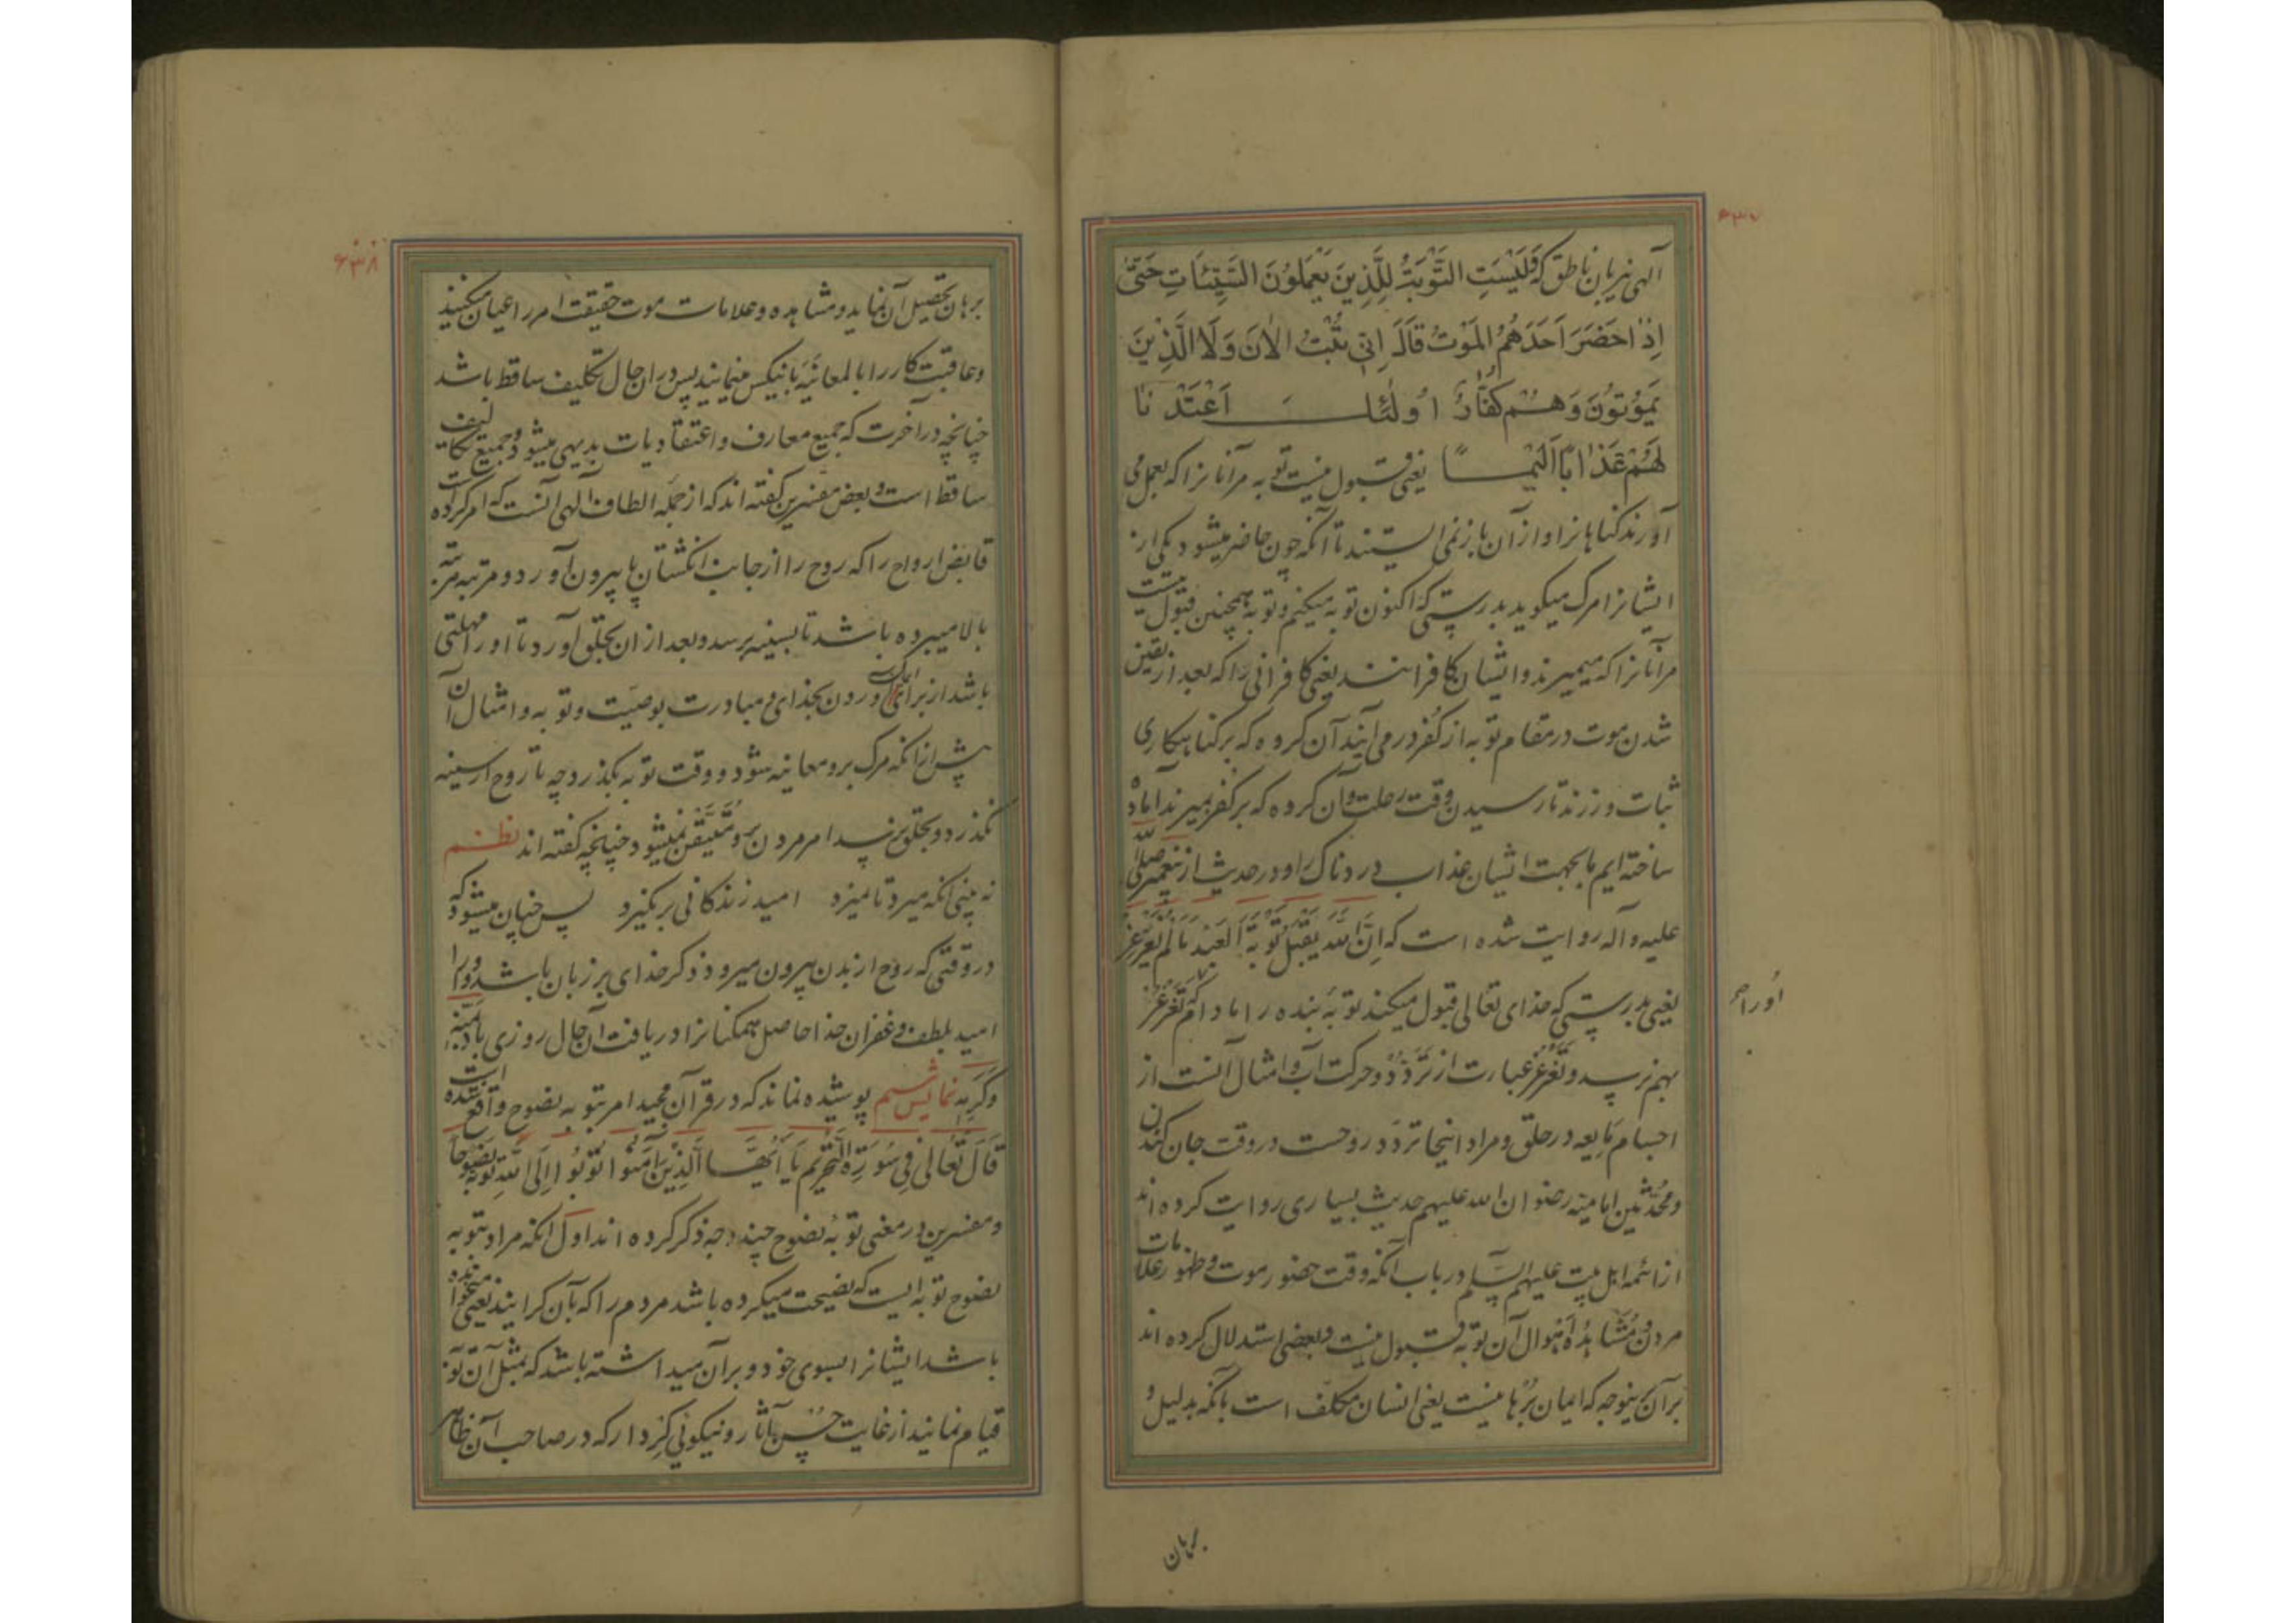 ۶۳۷
الهی نیز بآن ناطق که فَلَیْسَتِ التَّوْبَةُ لِلَّذِینَ یَعْمَلُونَ السَّیِّئَاتِ حَتّیٰ
اِذٰا حَضَرَ اَحَدَهُمُ المَوْتُ قَالَ اِنّی تُبْتُ الْاٰنَ وَلَا الَّذِینَ
یَمُوتُونَ وَهُمْ کُفّارٌ اُولٰئِکَ اَعْتَدْنٰا
لَهُمْ عَذٰاباً اَلیماً یعنی قبول نیست توبه مر آنانرا که بعمل می
آورند کناهانرا و از آن باز نمی ایستند تا آنکه چون حاضر میشود یکی از
ایشانرا مرک میکوید بدرستی که اکنون توبه میکنم و توبه همچنین قبول نیست
مر آنانرا که میمیرند و ایشان کافرانند یعنی کافرانی را که بعد از یقین
شدن موت در مقام توبه از کفر در می آیند آن کروه که بر کناهکاری
ثبات ورزند تا رسیدن وقت رحلت و آن کروه که بر کفر بمیرند آماده
ساخته ایم ما بجهت ایشان عذاب دردناک را و در حدیث از پیغمبر صلی الله
علیه و آله روایت شده است که اِنَّ اللّٰهَ یَقْبَلُ تَوْبَةَ العَبْدِ مَا لَمْ یُغَرْغِرْ
یعنی بدرستی که خدای تعالی قبول میکند توبۀ بنده را مادام که تغرغر
اورا
بهم نرسد و تغرغر عبارت از تَرَدُّد و حرکت آب و امثال آنست از
اجسام مایعه در حلق و مراد اینجا تردد روحست در وقت جان کندن
و محدّثین امامیه رضوان الله علیهم حدیث بسیاری روایت کرده اند
از ائمه اهل بیت علیهم السّلام در باب آنکه وقت حضور موت و ظهور علامات
مردن و مُشاهدۀ اَهوال آن توبه قبول نیست و بعضی استدلال کرده اند
بر آن باینوجه که ایمان برهانیست یعنی انسان مکلّف است بآنکه بدلیل و
برهان
۶۳۸
برهان تحصیل آن نماید و مشاهده و علامات موت حقیقت امر را عیان میکنند
و عاقبت کار را بالمعاینه بانیکس مینمایند پس در ان حال تکلیف ساقط باشد
چنانچه در آخرت که جمیع معارف و اعتقادیات بدیهی میشود و جمیع تکالیف
ساقط است و بعض مفسرین کفته اند که از جمله الطاف الهی آنست که امر کرده است
قابض ارواح را که روح را از جانب انکشتان پا بیرون آورد و مرتبه مرتبه
بالا میبرده باشد تا بسینه برسد و بعد از ان بحلق آورد تا او را مهلتی
باشد از برای آوردن بخدای و مبادرت بوصیّت و توبه و امثال آن
پیش از آنکه مرک بر و معاینه شود و وقت توبه بکذرد چه تا روح از سینه
نکذرد و بحلق نرسد امر مردن برو مُتَیَقَّن نمیشود چنانچه کفته اند نظم
نه بینی آنکه میرد تا نمیرد امید زندکانی بر نکیرد پس چنان میشود که
در وقتی که روح از بدن بیرون میرود ذکر خدای بر زبان باشد و او را
امید بلطف و غفران خدا حاصل همکنانرا دریافت آن حال روزی باد بمنّه
وکَرَمِه نمایش ششم پوشیده نماند که در قرآن مجید امر بتوبه نصوح واقع شده است
قَالَ تَعٰالیٰ فِی سُورَةِ التَّحْرِیم یٰا اَیُّهَا الَّذِینَ آمَنُوا تُوبُوا اِلَی اللّٰهِ تَوْبَةً نَصُوحاً
و مفسرین در معنی توبۀ نصوح چند وجه ذکر کرده اند اول آنکه مراد بتوبه
نصوح توبه ایست که نصیحت میکرده باشد مردم را که بآن کرایند یعنی میخوانده
باشد ایشانرا بسوی خود و بر آن میداشته باشد که بمثل آن توبه
قیام نمایند از غایت حُسن آثار و نیکوئی کردار که در صاحب آن ظاهر